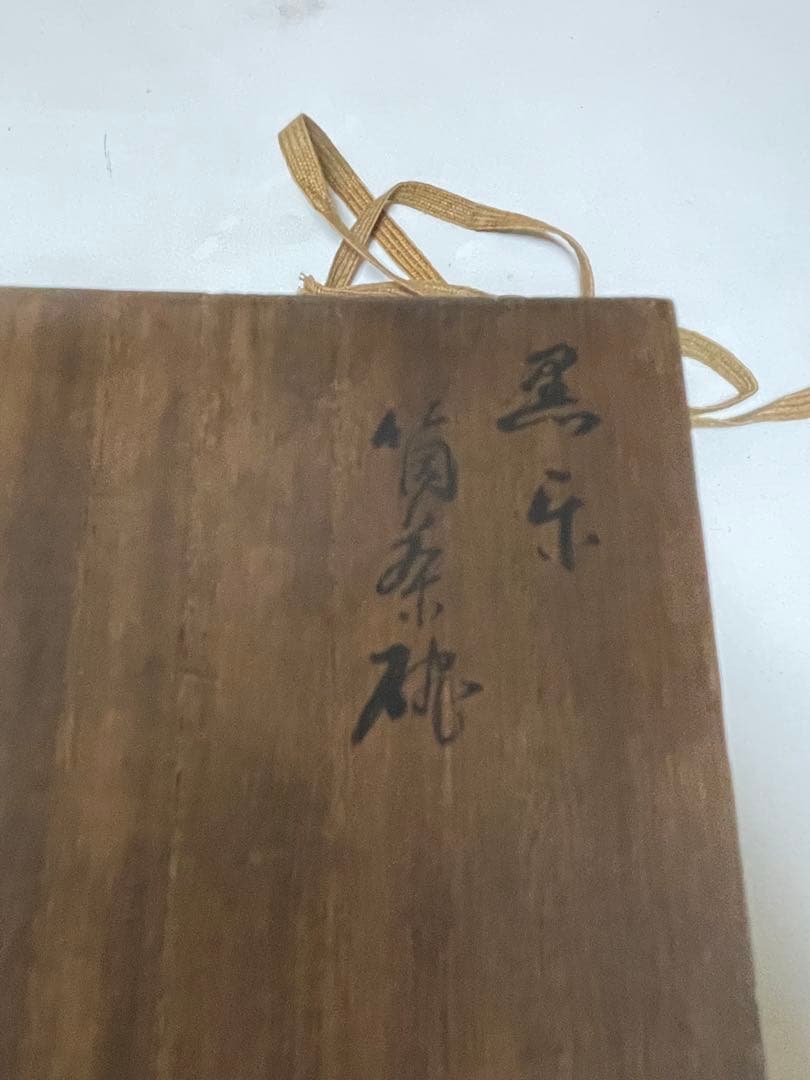 黒楽
筒茶碗